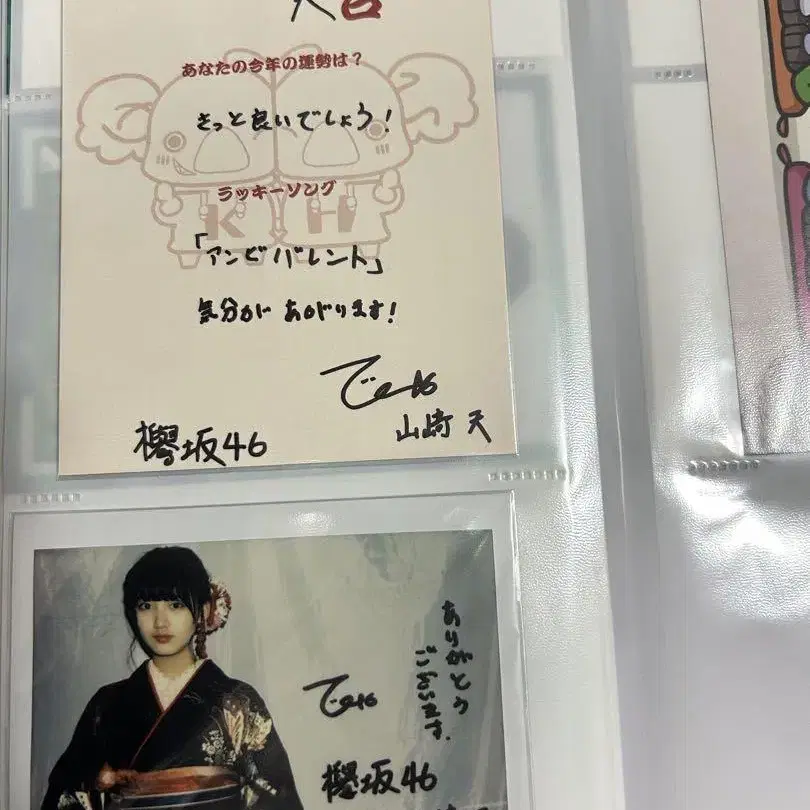 大吉
あなたの今年の運勢は？
きっと良いでしょう！
ラッキーソング
「アンビバレント」
気分が あがります！
欅坂46
山﨑 天
K H
ありがとう
ございます。
欅坂46